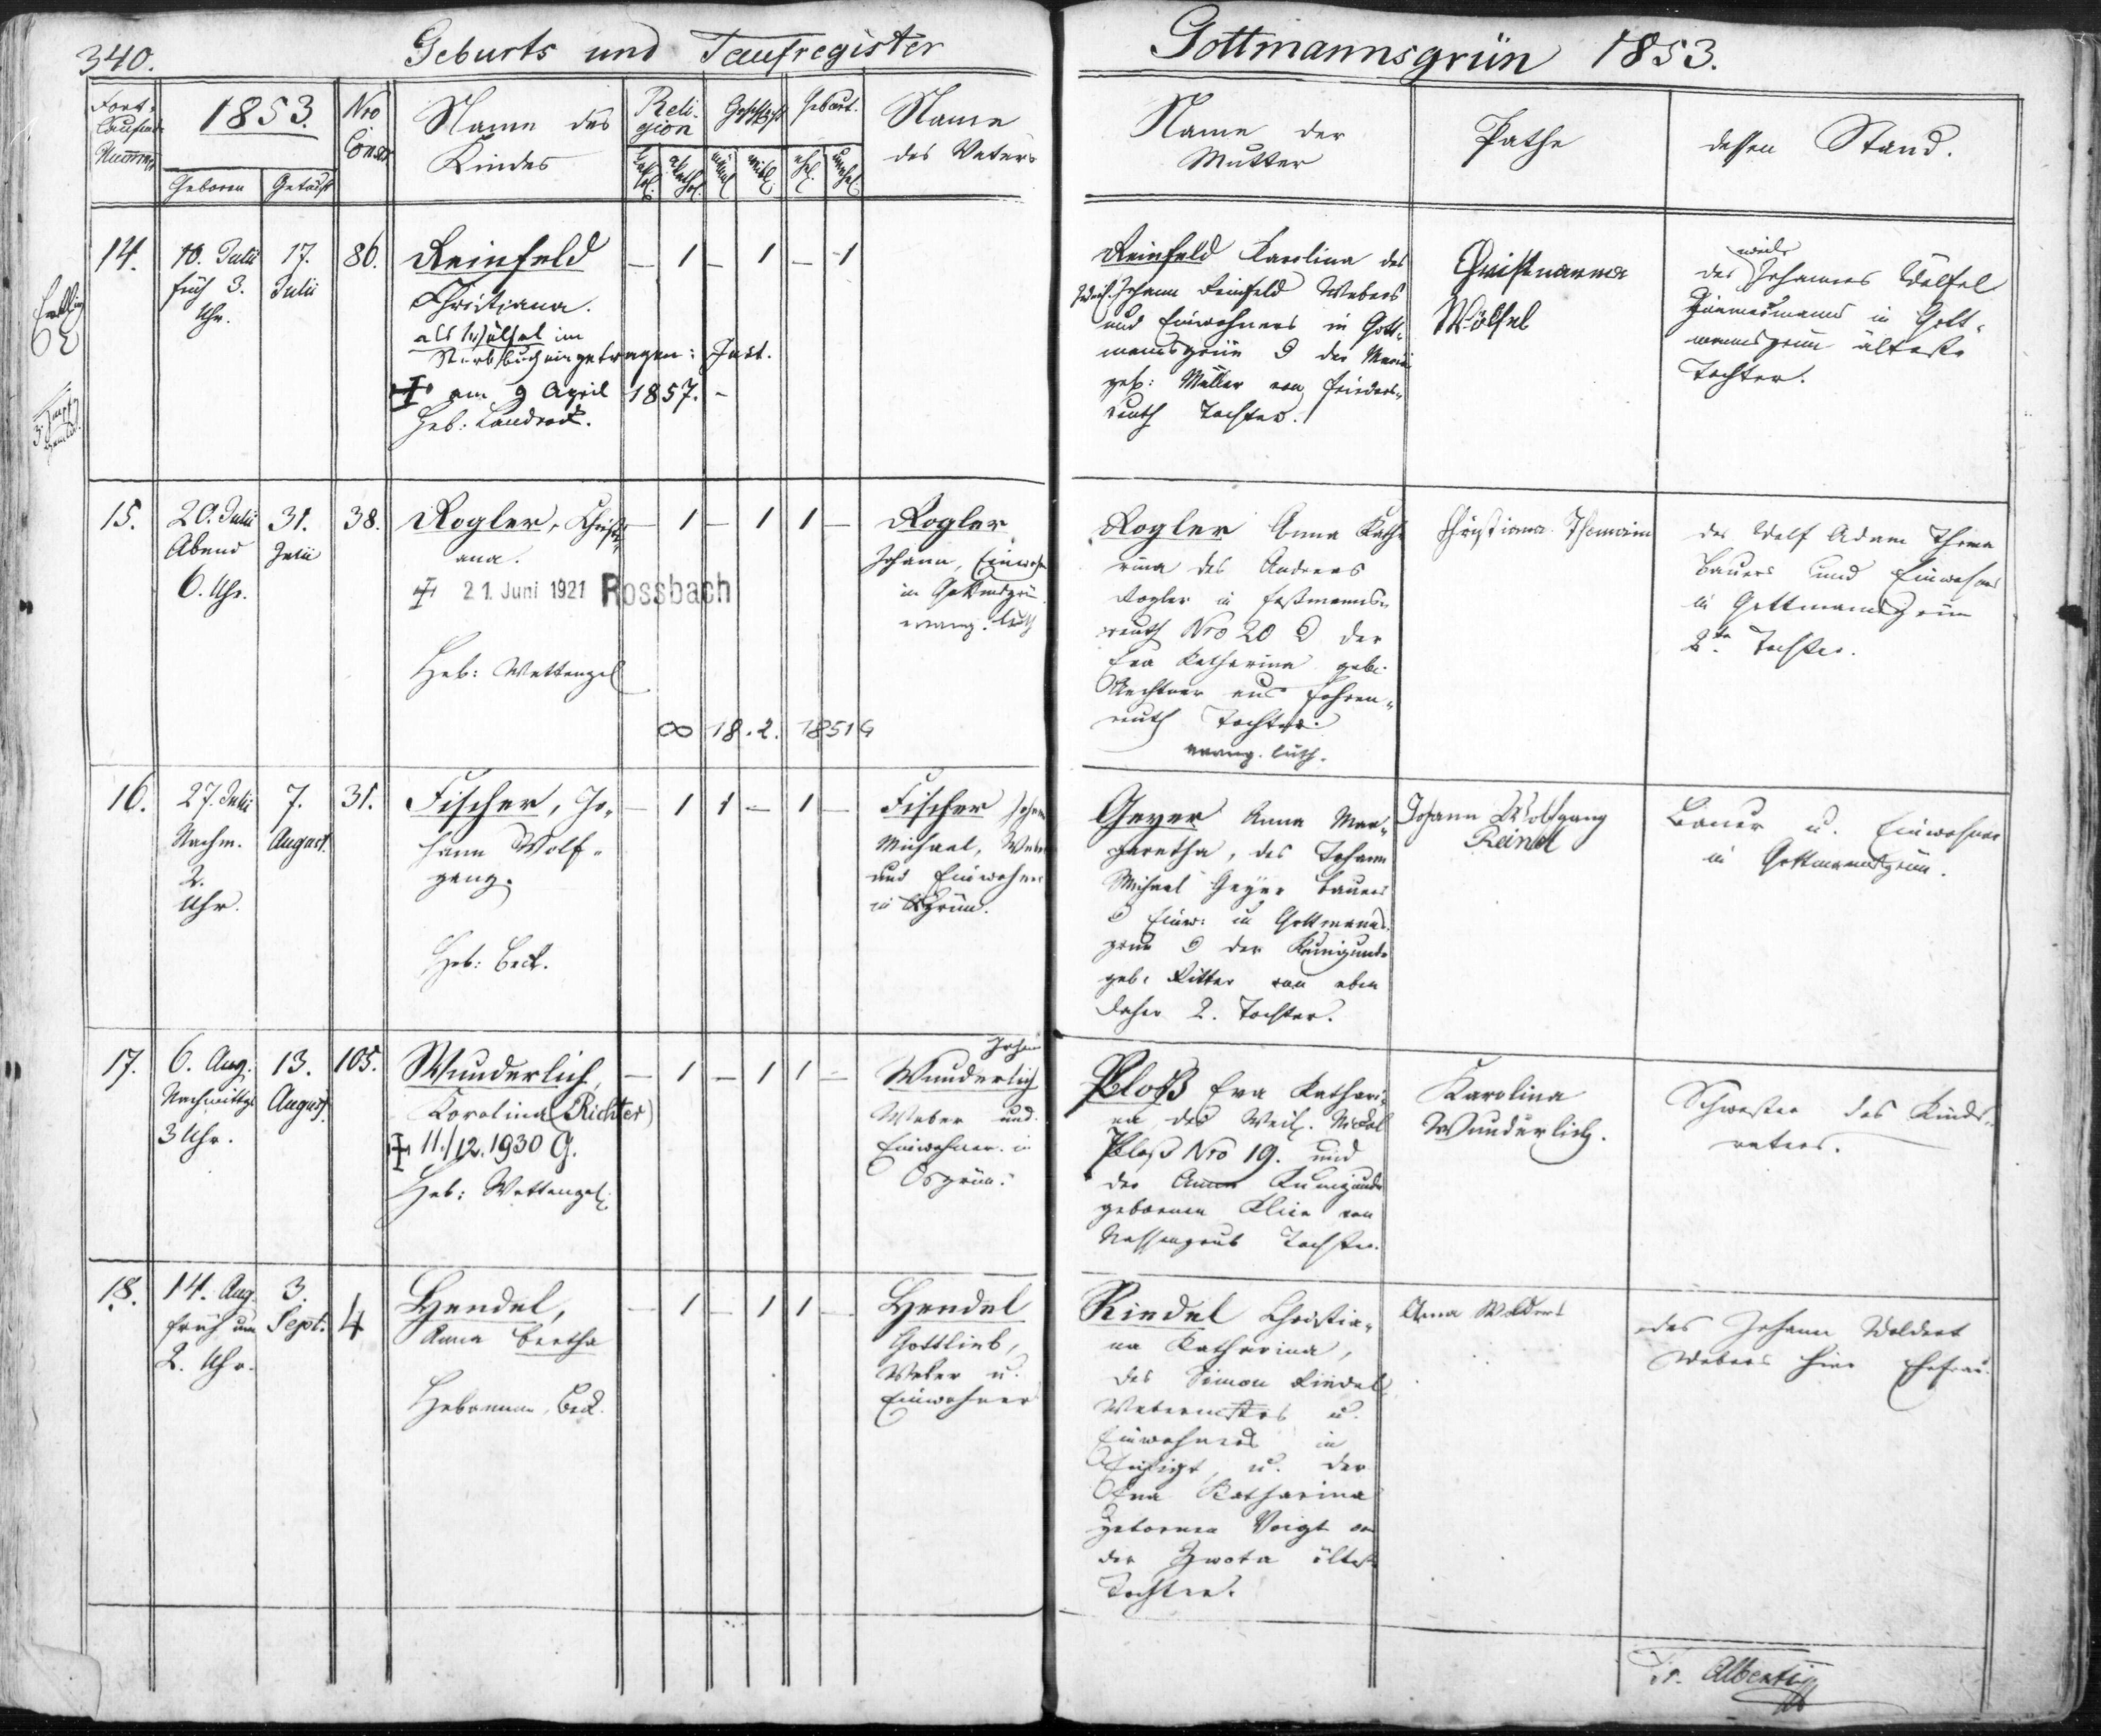 340.
Geburts und Taufregister
Gottmannsgrün 1853.
Fort-
laufende
Nummer
1853.
Geboren
Getauft
Nro
Conscr
Name des
Kindes
Reli-
gion
Geschlecht
Geburt.
Name
des Vaters
Name der
Mutter
Pathe
dessen Stand.
14.
10. Julii
früh 3.
Uhr.
17.
Julii
86.
Reinfeld
Christiana.
als Wölfel im
Sterbbuch eingetragen: Just.
am 9 April 1857. -
Heb: Landrock.
– 1 – 1 – 1
Reinfeld Karolina des
Johann Reinfeld Webers
und Einwohners in Gott-
mannsgrün & der
geb: Müller von Frieders-
reuth Tochter.
Wölfel
des Johannes Wölfel
Zimmermanns in Gott-
mannsgrün älteste
Tochter.
15.
20. Julii
Abend
6. Uhr.
31.
Julii
38.
Rogler, Christi-
ana.
21. Juni 1921 Rossbach
Heb: Wettengel
∞ 18. 2.
– 1 – 1 1 –
Rogler
Johann, Einwohn
in
evang. luth
Rogler Anna Katha
rina des Andreas
Rogler in
reuth Nro 20 & der
Eva Katharina geb:
aus Fohren-
reuth Tochter.
evang. luth.
Christiana
des Wolf Adam
Bauers und Einwohners
in Gottmannsgrün
2te Tochter.
16.
27. Julii
Nachm.
2.
Uhr.
7.
August.
31.
Fischer, Jo-
hann Wolf-
gang.
Heb: Beck.
– 1 1 – 1 –
Fischer Johann
Michael, Weber
und Einwohner
in
Geyer Anna Mar-
garetha, des Johann
Michael Geyer Bauers
& Einw: in Gottmanns-
grün & der Kunigunda
geb: Ritter von eben
daher 2. Tochter.
Johann Wolfgang
Reindl
Bauer u. Einwohner
in Gottmannsgrün.
17.
6. Aug.
Nachmittgs
3 Uhr.
13.
August.
105.
Wunderlich,
Karolina (Richter)
11./12. 1930 G.
Heb: Wettengel.
– 1 – 1 1 –
Johann
Wunderlich
Weber und
Einwohner in
Ploß Eva Kathari-
na des Weil. Nickol
Ploß Nro 19. und
der Anna Kunigunda
gebornen von
Nassengrub Tochter.
Karolina
Wunderlich.
Schwester des Kinds-
vaters.
18.
14. Aug.
früh um
2. Uhr.
3.
Sept.
4
Hendel,
Anna Bertha
Hebamme, Beck.
– 1 – 1 1 –
Hendel
Gottlieb,
Weber u.
Einwohner
Riedel Christia-
na Katharina,
des Simon Riedel,
Webermstrs u.
Einwohners in
u. der
Eva Katharina
gebornen Voigt von
der Zwota ältest
Tochter.
Anna Woldert
des Johann Woldert
Webers hier Ehefrau.
Fr. Alberti